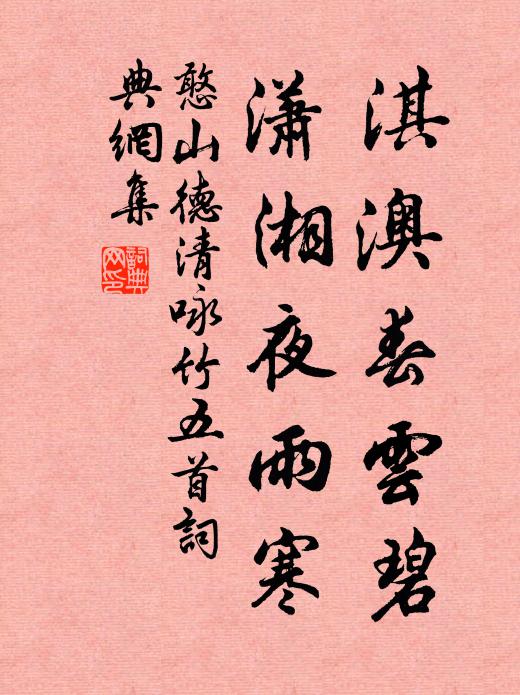 淇澳春雲碧
瀟湘夜雨寒
憨山德清咏竹五首詞
典網集
詞典
网印